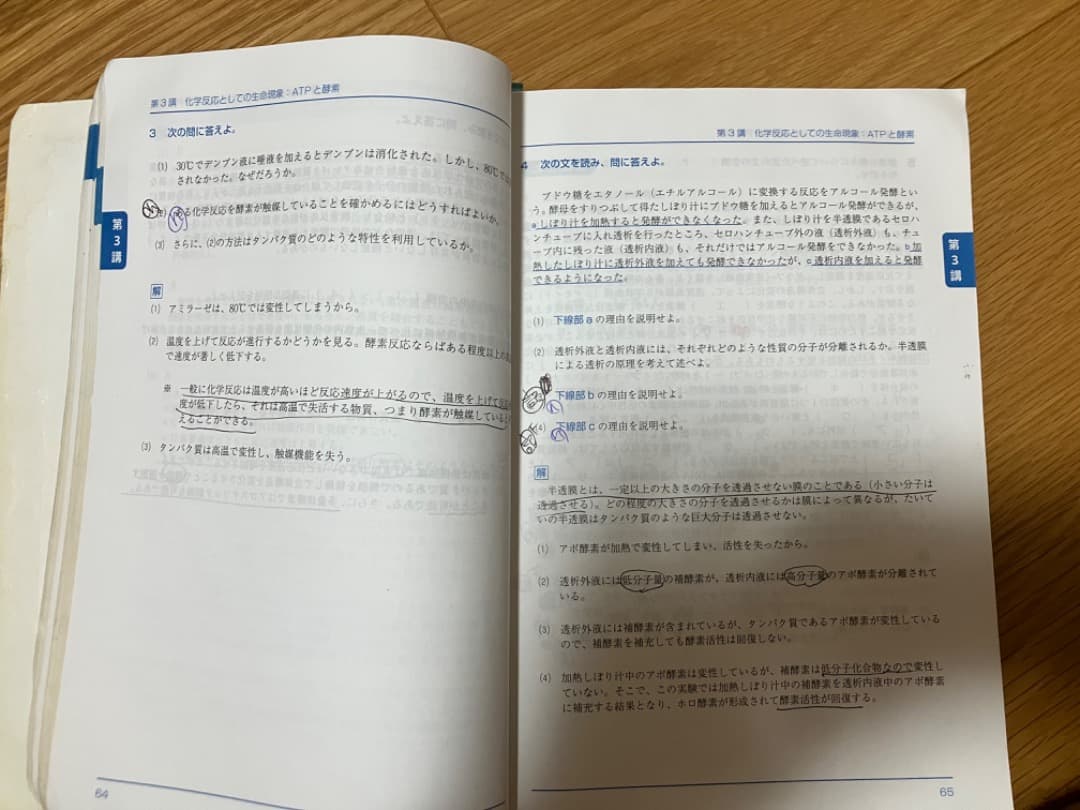 第3講 化学反応としての生命現象：ATPと酵素
3 次の問に答えよ。
(1) 30℃でデンプン液に唾液を加えるとデンプンは消化された。しかし、80℃では
されなかった。なぜだろうか。
ある化学反応を酵素が触媒していることを確かめるにはどうすればよいか。
(3) さらに、(2)の方法はタンパク質のどのような特性を利用しているか。
第3講
解
(1) アミラーゼは、80℃では変性してしまうから。
(2) 温度を上げて反応が進行するかどうかを見る。酵素反応ならばある程度以上の
で速度が著しく低下する。
※ 一般に化学反応は温度が高いほど反応速度が上がるので、温度を上げて
度が低下したら、それは高温で失活する物質、つまり酵素が触媒している
えることができる。
(3) タンパク質は高温で変性し、触媒機能を失う。
64
第3講 化学反応としての生命現象：ATPと酵素
4 次の文を読み、問に答えよ。
ブドウ糖をエタノール（エチルアルコール）に変換する反応をアルコール発酵とい
う。酵母をすりつぶして得たしぼり汁にブドウ糖を加えるとアルコール発酵ができるが、
aしぼり汁を加熱すると発酵ができなくなった。また、しぼり汁を半透膜であるセロハ
ンチューブに入れ透析を行ったところ、セロハンチューブ外の液（透析外液）も、チュ
ーブ内に残った液（透析内液）も、それだけではアルコール発酵をできなかった。b加
熱したしぼり汁に透析外液を加えても発酵できなかったが、c透析内液を加えると発酵
できるようになった。
第3講
(1) 下線部aの理由を説明せよ。
(2) 透析外液と透析内液には、それぞれどのような性質の分子が分離されるか。半透膜
による透析の原理を考えて述べよ。
下線部bの理由を説明せよ。
(4) 下線部cの理由を説明せよ。
解
半透膜とは、一定以上の大きさの分子を透過させない膜のことである（小さい分子は
透過させる）。どの程度の大きさの分子を透過させるかは膜によって異なるが、たいて
いの半透膜はタンパク質のような巨大分子は透過させない。
(1) アポ酵素が加熱で変性してしまい、活性を失ったから。
(2) 透析外液には低分子量の補酵素が、透析内液には高分子量のアポ酵素が分離されて
いる。
(3) 透析外液には補酵素が含まれているが、タンパク質であるアポ酵素が変性している
ので、補酵素を補充しても酵素活性は回復しない。
(4) 加熱しぼり汁中のアポ酵素は変性しているが、補酵素は低分子化合物なので変性し
ていない。そこで、この実験では加熱しぼり汁中の補酵素を透析内液中のアポ酵素
に補充する結果となり、ホロ酵素が形成されて酵素活性が回復する。
65